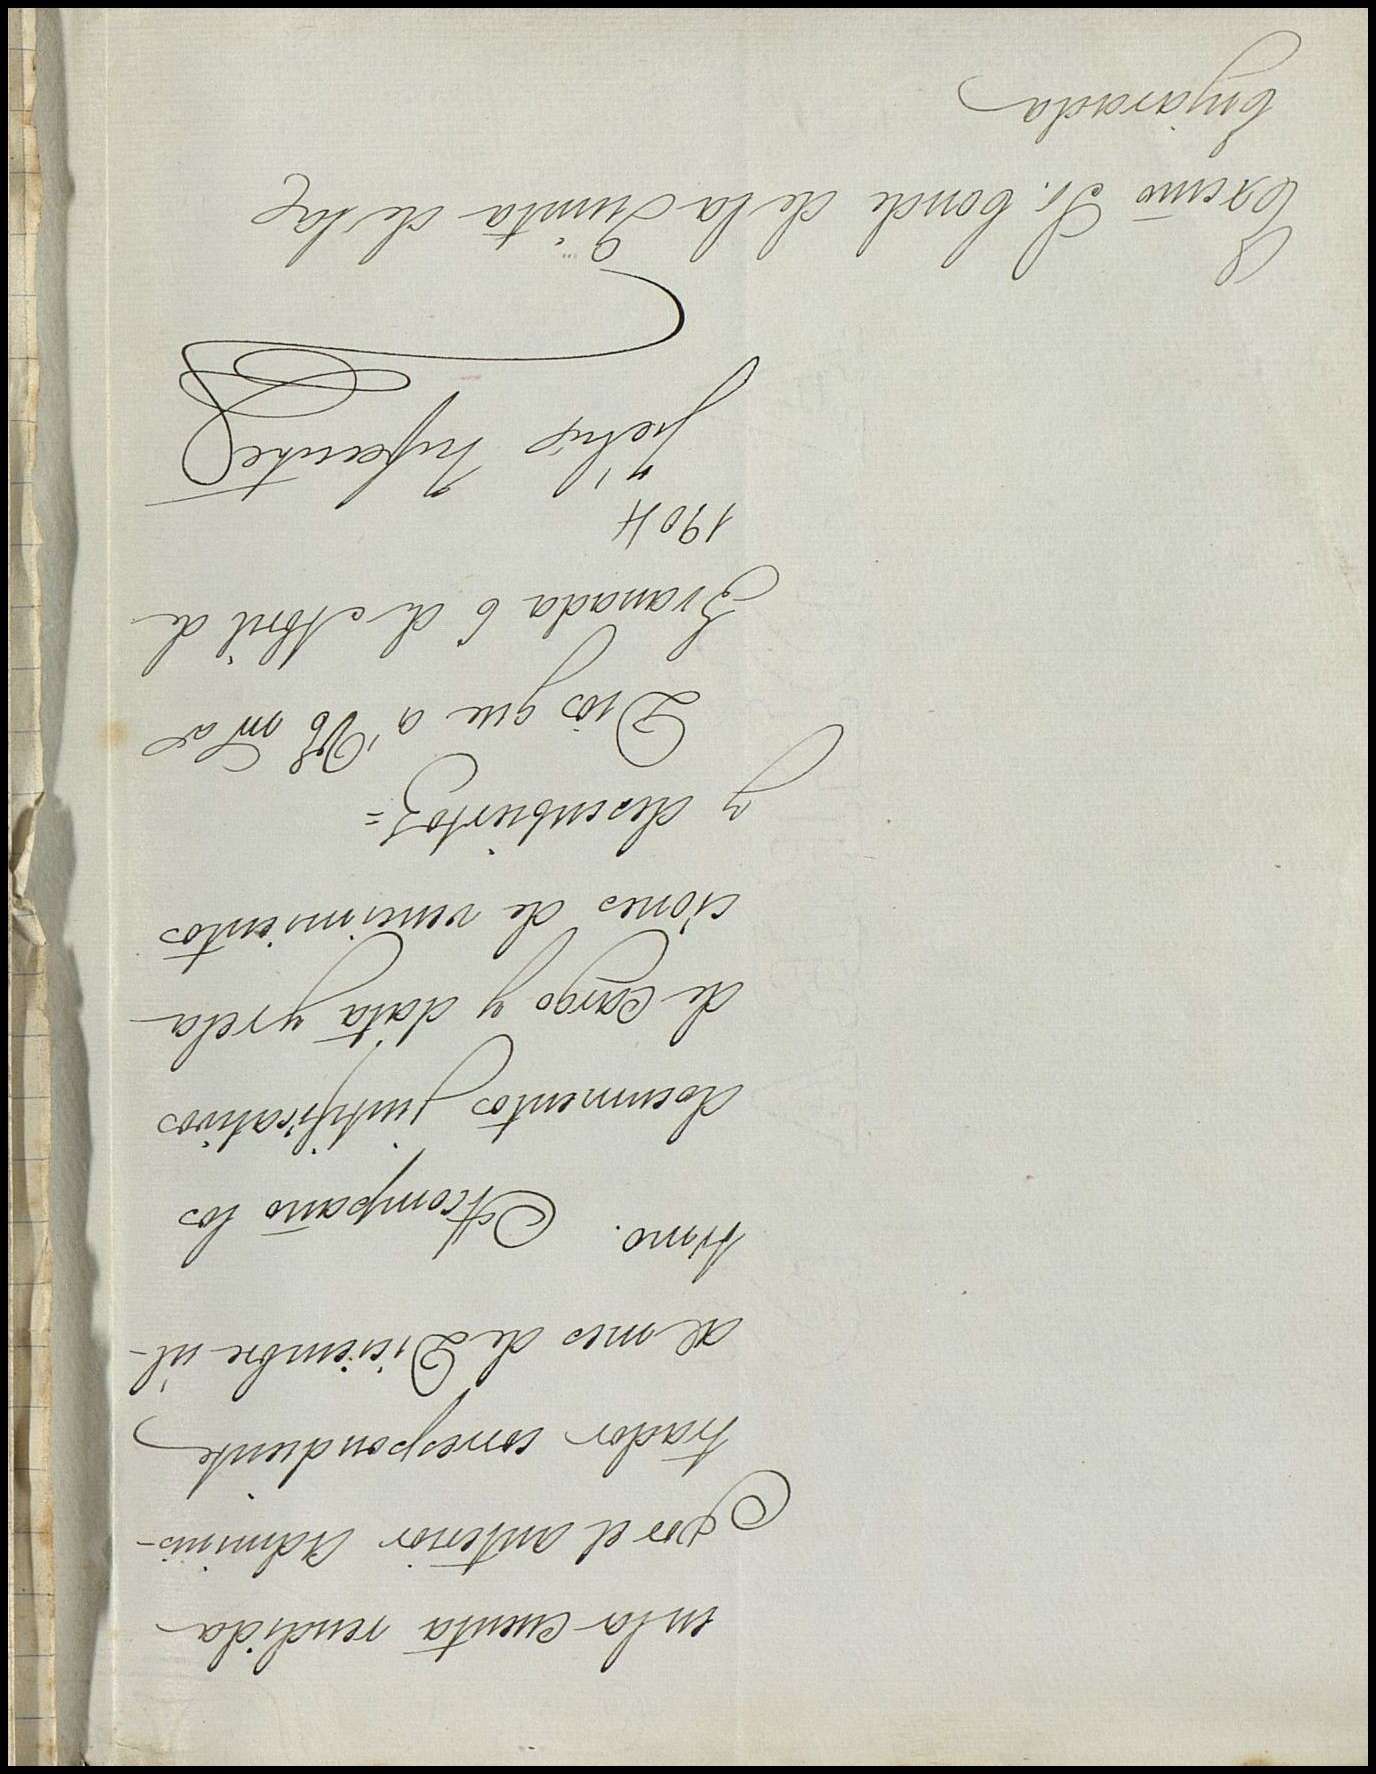 en la cuenta rendida
por el anterior Adminis-
trador correspondiente
al mes de Diciembre úl-
timo. Acompaño los
documentos justificativos
de cargo y data y rela
ciones de vencimientos
y descubiertos=
Dios gue a V E m a
Granada 6 de Abril de
1904
Felix Infante
Excmo Sr. Conde de la Quinta de la
Enjarada